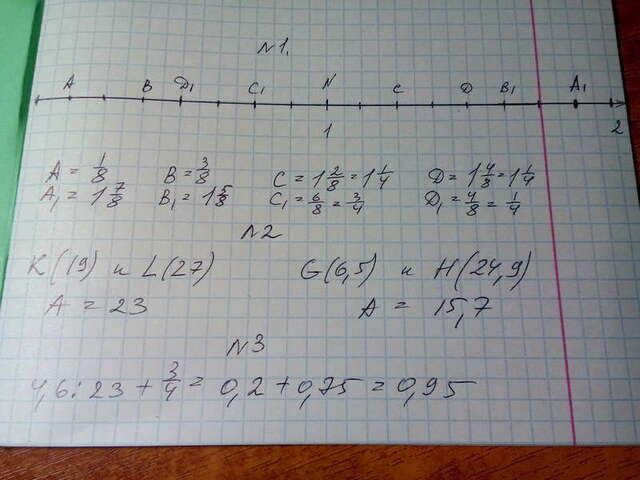 N1.
A B D₁ C₁ N C D B₁ A₁
1 2
A = 1/8 B = 3/8 C = 1 2/8 = 1 1/4 D = 1 4/8 = 1 1/4
A₁ = 1 7/8 B₁ = 1 5/8 C₁ = 6/8 = 3/4 D₁ = 4/8 = 1/4
N2
K(19) и L(27) G(6,5) и H(24,9)
A = 23 A = 15,7
N3
4,6 : 23 + 3/4 = 0,2 + 0,75 = 0,95